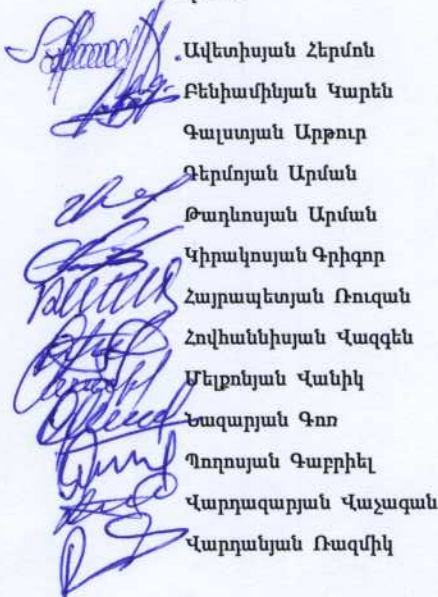 Ավետիսյան Հերմոն
Բենիամինյան Կարեն
Գալստյան Արթուր
Գերմոյան Արման
Թադևոսյան Արման
Կիրակոսյան Գրիգոր
Հայրապետյան Ռուզան
Հովհաննիսյան Վազգեն
Մելքոնյան Վանիկ
Նազարյան Գոռ
Պողոսյան Գաբրիել
Վարդազարյան Վաչագան
Վարդանյան Ռազմիկ